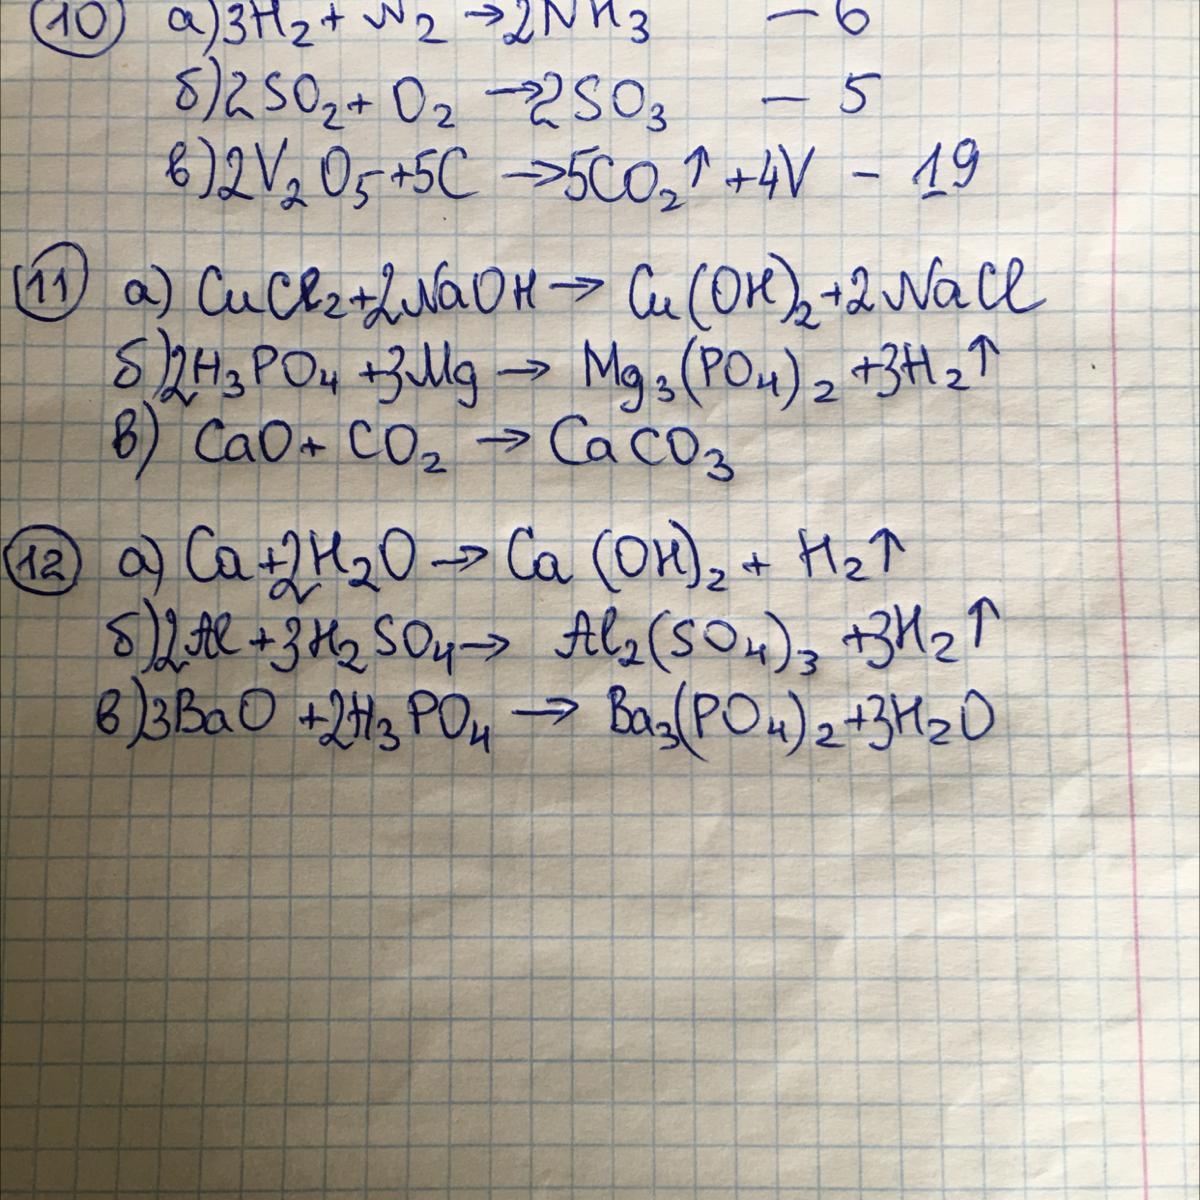 10 а) 3H₂ + N₂ → 2NH₃ – 6
б) 2SO₂ + O₂ → 2SO₃ – 5
в) 2V₂O₅ + 5C → 5CO₂↑ + 4V – 19
11 а) CuCl₂ + 2NaOH → Cu(OH)₂ + 2NaCl
б) 2H₃PO₄ + 3Mg → Mg₃(PO₄)₂ + 3H₂↑
в) CaO + CO₂ → CaCO₃
12 а) Ca + 2H₂O → Ca(OH)₂ + H₂↑
б) 2Al + 3H₂SO₄ → Al₂(SO₄)₃ + 3H₂↑
в) 3BaO + 2H₃PO₄ → Ba₃(PO₄)₂ + 3H₂O